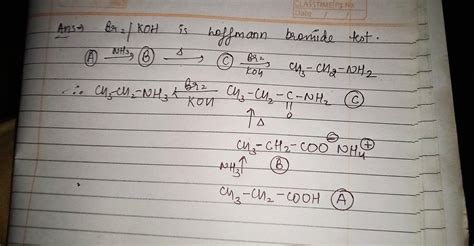 CLASSTEACHING NO.
Date
Ans→ Br₂/KOH is hoffmann bromide test.
Ⓐ —NH₃→ Ⓑ —Δ→ Ⓒ —Br₂/KOH→ CH₃-CH₂-NH₂
∴ CH₃CH₂-NH₃ ←Br₂/KOH— CH₃-CH₂-C-NH₂ Ⓒ
O
↑Δ
CH₃-CH₂-COO⊖ NH₄⊕
NH₃↑ Ⓑ
CH₃-CH₂-COOH Ⓐ